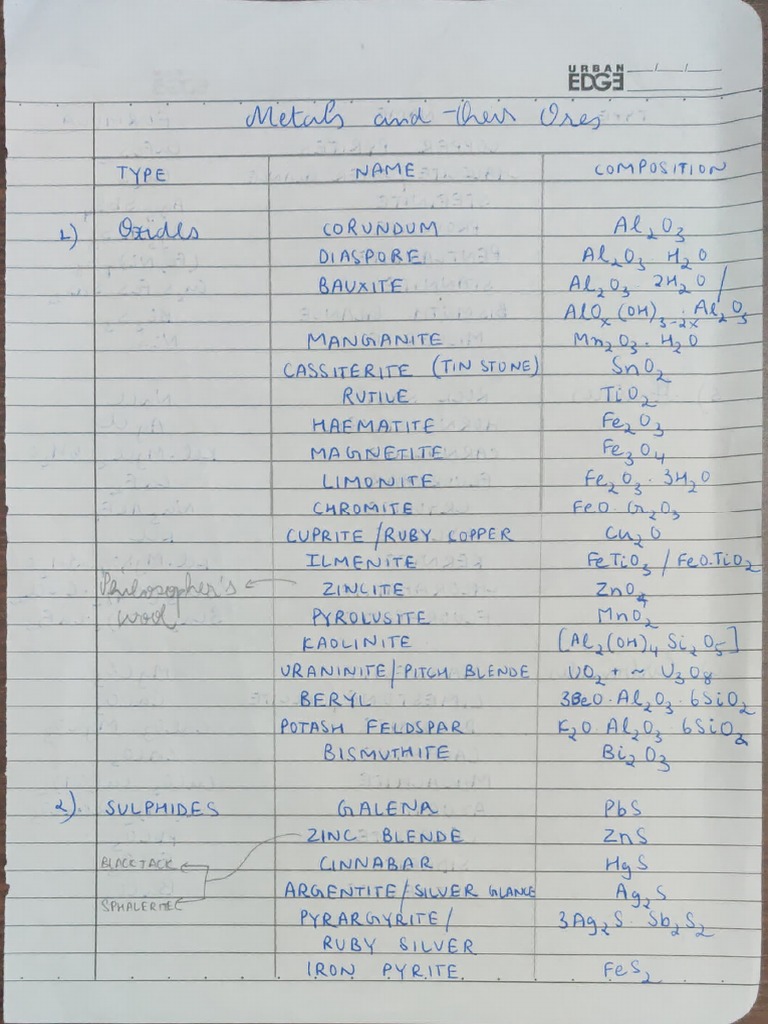 URBAN
EDGE
Metals and their Ores
TYPE NAME COMPOSITION
1) Oxides CORUNDUM Al₂O₃
DIASPORE Al₂O₃ H₂O
BAUXITE Al₂O₃ 2H₂O /
AlOₓ(OH)₃₋₂ₓ · Al₂O₃
MANGANITE Mn₂O₃ · H₂O
CASSITERITE (TIN STONE) SnO₂
RUTILE TiO₂
HAEMATITE Fe₂O₃
MAGNETITE Fe₃O₄
LIMONITE Fe₂O₃ · 3H₂O
CHROMITE FeO · Cr₂O₃
CUPRITE / RUBY COPPER Cu₂O
ILMENITE FeTiO₃ / FeO.TiO₂
Philosopher's ← ZINCITE ZnO
wool PYROLUSITE MnO₂
KAOLINITE [Al₂(OH)₄ Si₂O₅]
URANINITE / PITCH BLENDE UO₂ + ~ U₃O₈
BERYL 3BeO · Al₂O₃ · 6SiO₂
POTASH FELDSPAR K₂O Al₂O₃ · 6SiO₂
BISMUTHITE Bi₂O₃
2) SULPHIDES GALENA PbS
ZINC BLENDE ZnS
BLACKJACK ← CINNABAR HgS
ARGENTITE / SILVER GLANCE Ag₂S
SPHALERITE ← PYRARGYRITE / 3Ag₂S · Sb₂S₂
RUBY SILVER
IRON PYRITE FeS₂